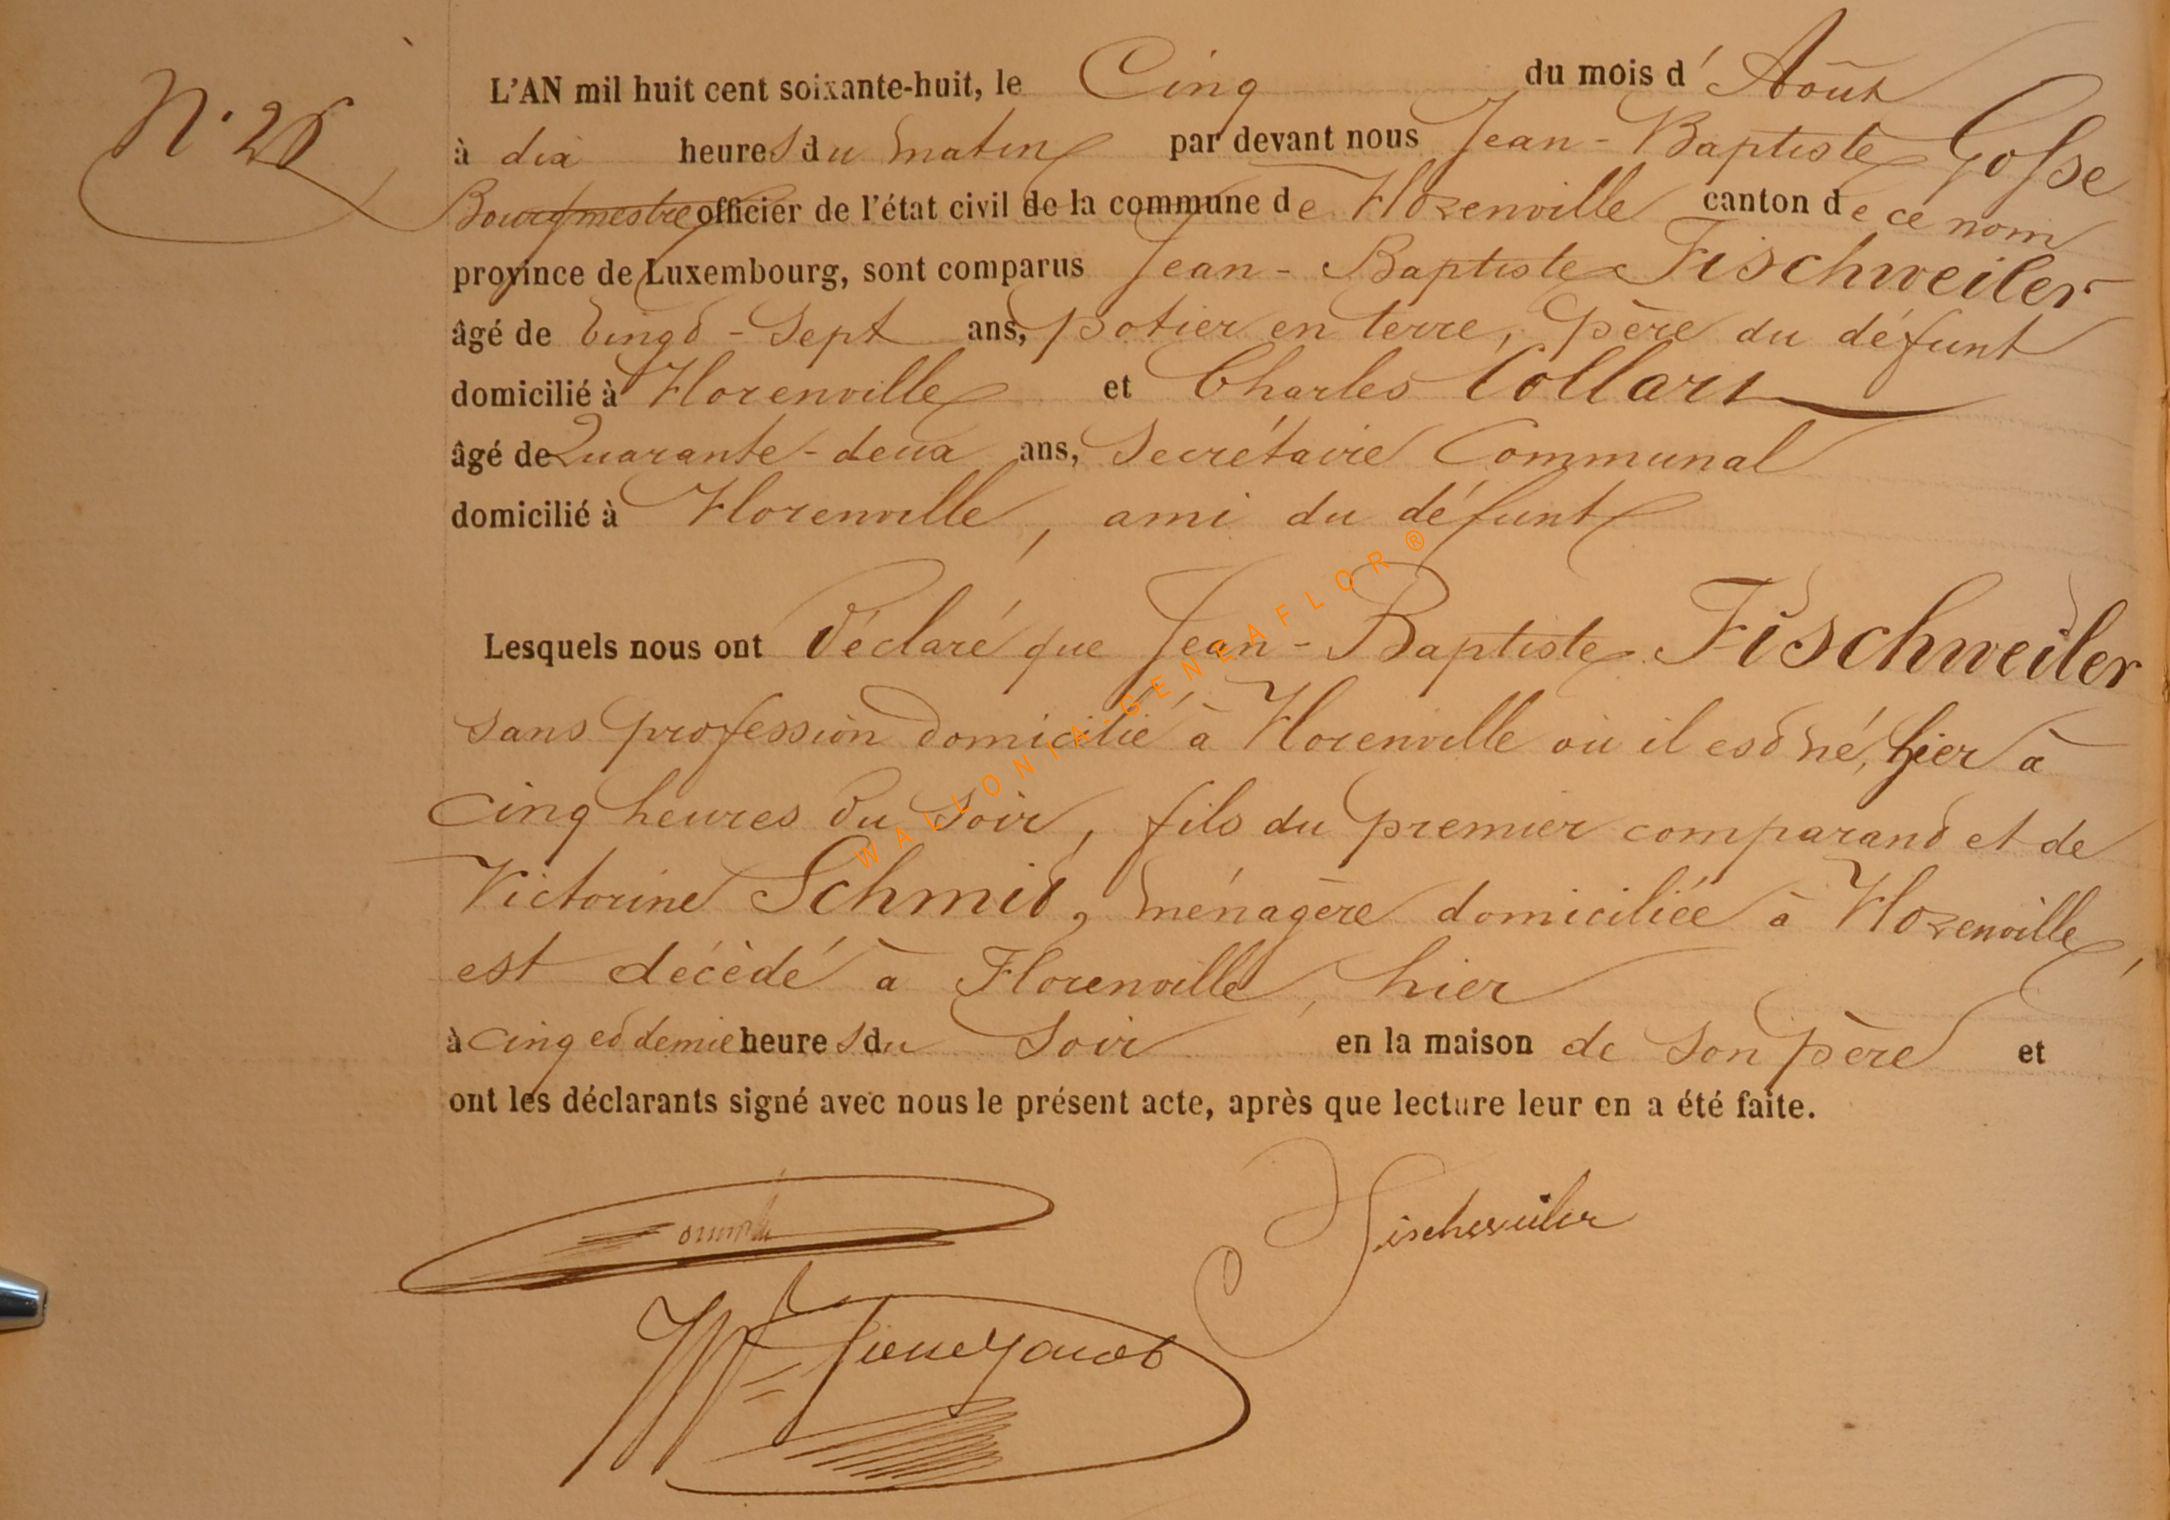 N. 28
L'AN mil huit cent soixante-huit, le Cinq du mois d'Août
à dix heures du matin par devant nous Jean-Baptiste Gosse
Bourgmestre officier de l'état civil de la commune de Florenville canton de ce nom
province de Luxembourg, sont comparus Jean-Baptiste Fischweiler
âgé de vingt-Sept ans, potier en terre, père du défunt
domicilié à Florenville et Charles Collart
âgé de Quarante-deux ans, Secrétaire Communal
domicilié à Florenville, ami du défunt
Lesquels nous ont Déclaré que Jean-Baptiste Fischweiler
sans profession domicilié à Florenville où il est né, hier à
cinq heures du soir, fils du premier comparant et de
Victorine Schmit, ménagère domiciliée à Florenville,
est décédé à Florenville, hier
à cinq et demie heures du Soir en la maison de son père et
ont les déclarants signé avec nous le présent acte, après que lecture leur en a été faite.
Fischweiler
WALLONIA-GENEAFLOR ®